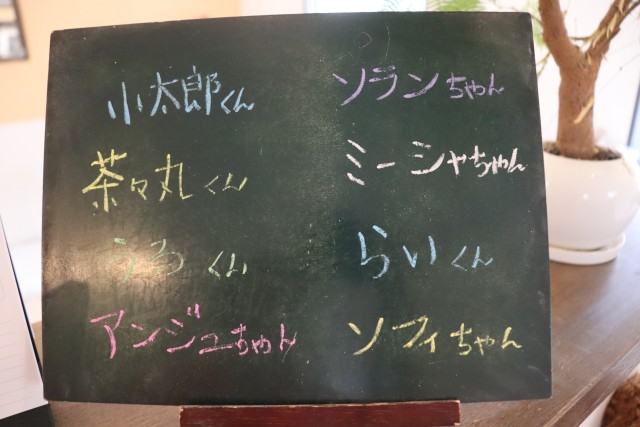 小太郎くん
茶々丸くん
うろくん
アンジュちゃん
ソランちゃん
ミーシャちゃん
らいくん
ソフィちゃん